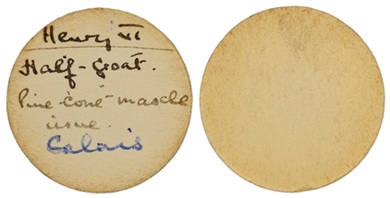 Henry VI
Half-Groat.
Pine-cone-mascle
issue.
Calais